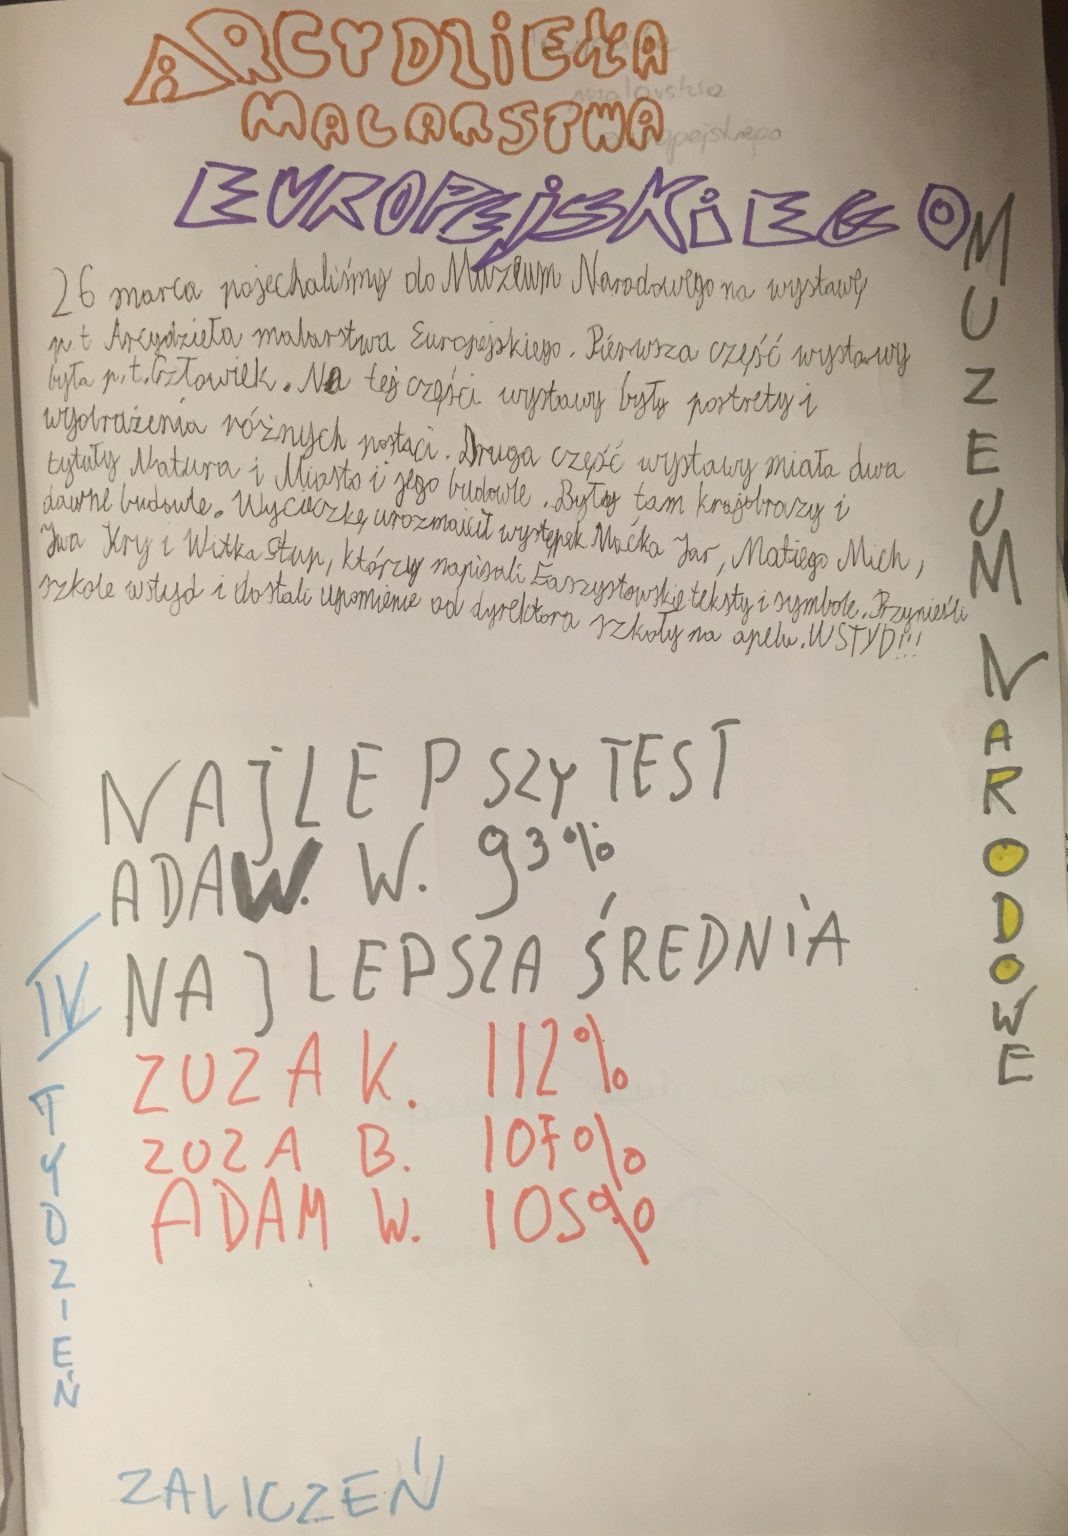 ARCYDZIEŁA
MALARSTWA
EUROPEJSKIEGO
26 marca pojechaliśmy do Muzeum Narodowego na wystawę
p t Arcydzieła malarstwa Europejskiego. Pierwsza część wystawy
była p.t. Człowiek. Na tej części wystawy były postrety i
wyobrażenia różnych postaci. Druga część wystawy miała dwa
tytuły Natura i Miasto i jego budowle. Były tam krajobrazy i
dawne budowle. Wycieczkę urozmaicił występek Maćka Jar, Matiego Mich,
Iwa Kry i Witka Stup, którzy napisali Faszystowskie teksty i symbole. Przynieśli
szkole wstyd i dostali upomienie od dyrektora szkoły na apelu. WSTYD!!!
MUZEUM NARODOWE
NAJLEPSZY TEST
ADAM W. 93%
NAJLEPSZA ŚREDNIA
ZUZA K. 112%
ZUZA B. 107%
ADAM W. 105%
IV TYDZIEŃ
ZALICZEŃ